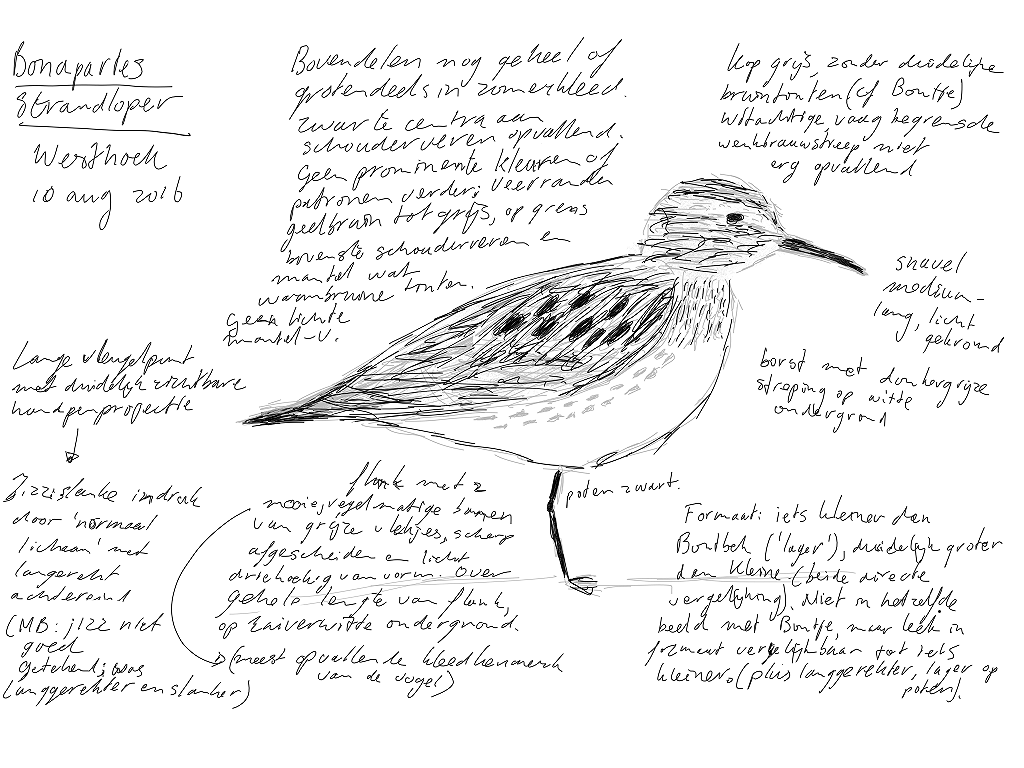 Bonapartes
Strandloper
Westhoek
10 aug 2016
Bovendelen nog geheel of
grotendeels in zomerkleed.
Zwarte centra aan
schouderveren opvallend.
Geen prominente kleuren of
patronen verder; veerranden
geelbruin tot grijs, op grens
bovenste schouderveren en
mantel wat
warmbruine tonten.
Geen lichte
mantel-V.
Kop grijs, zonder duidelijke
bruintonten (cf Bontje)
Witachtige vaag begrensde
wenkbrauwstreep niet
erg opvallend
snavel
medium-
lang, licht
gekromd
borst met donkergrijze
streping op witte
ondergrond
Lange vleugelpunt
met duidelijk zichtbare
handpenprojectie
Jizz: slanke indruk
door 'normaal
lichaam' met
langerekt
achtereind
(MB: jizz niet
goed
getekend; was
langgerekter en slanker)
flank met 2
mooie, regelmatige banen
van grijze vlekjes, scherp
afgescheiden en licht
driehoekig van vorm. Over
gehele lengte van flank,
op zuiverwitte ondergrond.
(meest opvallende kleedkenmerk
van de vogel)
poten zwart.
Formaat: iets kleiner dan
Bontbek ('lager'), duidelijk groter
dan Kleine (beide directe
vergelijking). Niet in hetzelfde
beeld met Bontje, maar leek in
formaat vergelijkbaar tot iets
kleiner. (plus langgerekter, lager op
poten).